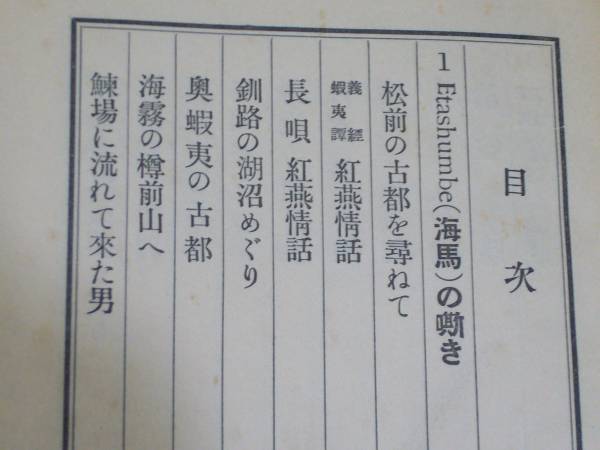 目次
1 Etashumbe(海馬)の嘶き
松前の古都を尋ねて
義經蝦夷譚 紅燕情話
長唄 紅燕情話
釧路の湖沼めぐり
奥蝦夷の古都
海霧の樽前山へ
鰊場に流れて來た男